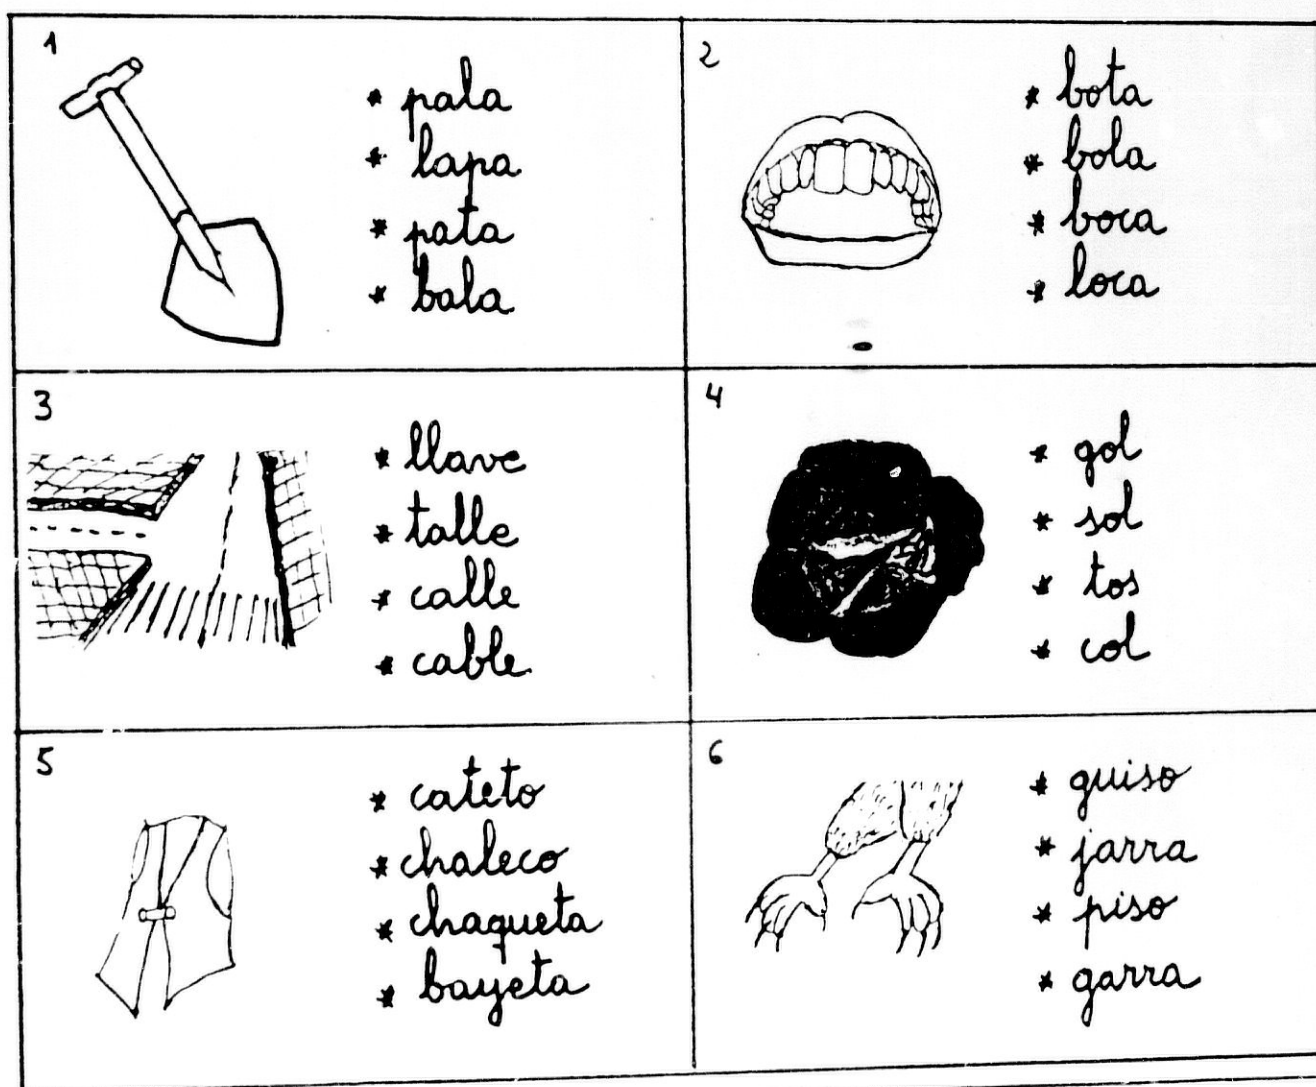 1
* pala
* lapa
* pata
* bala
2
* bota
* bola
* boca
* loca
3
* llave
* talle
* calle
* cable
4
* gol
* sol
* tos
* col
5
* cateto
* chaleco
* chaqueta
* bayeta
6
* guiso
* jarra
* piso
* garra